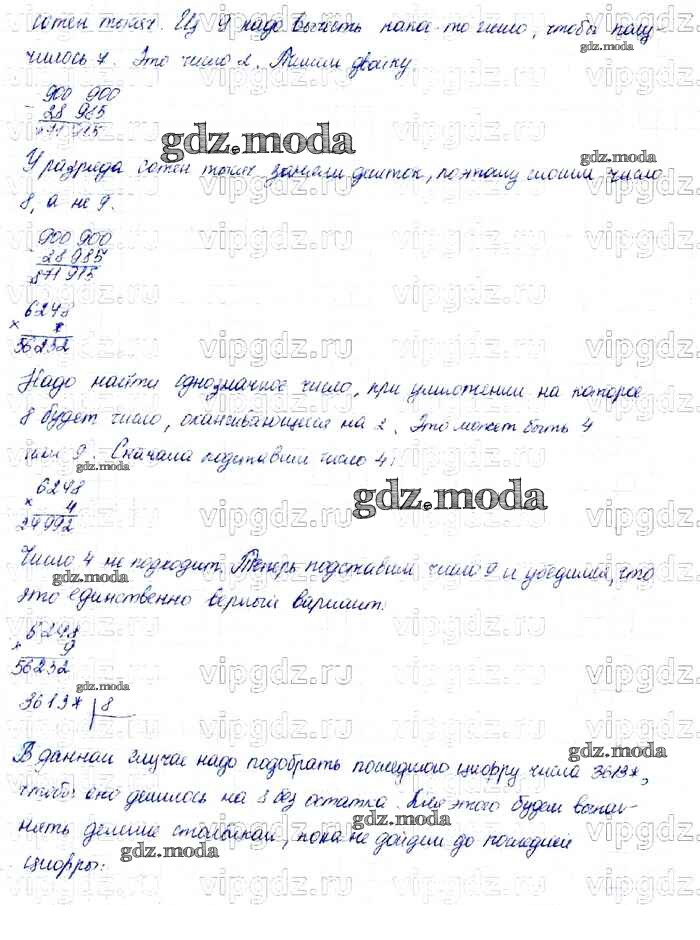 сотен тысяч. Из 9 надо вычесть какое-то число, чтобы полу-
чилось 7. Это число 2. Пишем двойку.
900 900
- 28 985
871 915
gdz.moda
У разряда сотен тысяч заняли десяток, поэтому пишем число
8, а не 9.
900 900
- 28 985
871 915
6248
× *
56232
Надо найти однозначное число, при умножении на которое
8 будет число, оканчивающееся на 2. Это может быть 4
или 9. Сначала подставим число 4:
6248
× 4
24992
gdz.moda
Число 4 не подходит. Теперь подставим число 9 и убедимся, что
это единственно верный вариант:
6248
× 9
56232
3613* | 8
В данном случае надо подобрать последнюю цифру числа 3613*,
чтобы оно делилось на 8 без остатка. Для этого будем выпол-
нять деление столбиком, пока не дойдем до последней
цифры:
vipgdz.com